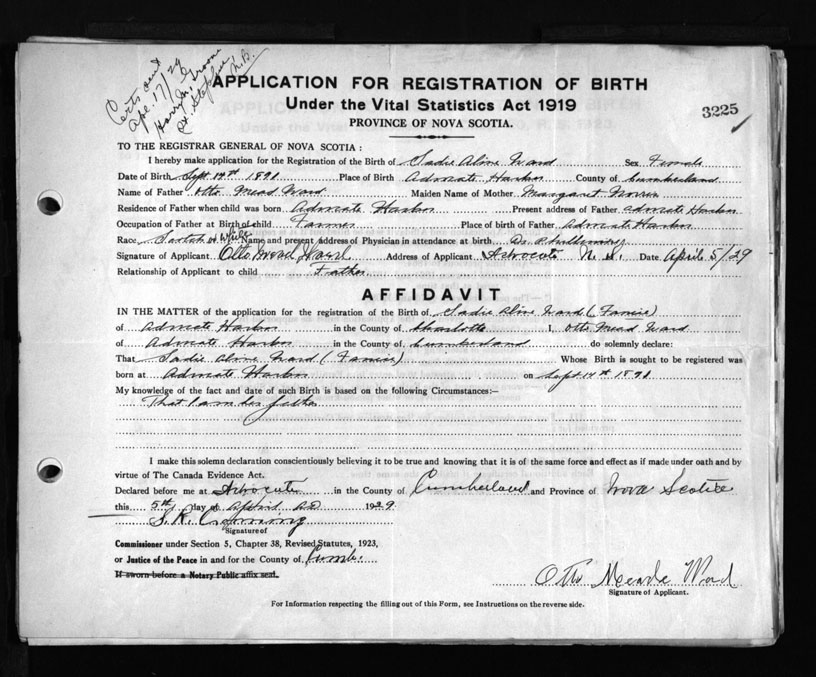 Certs sent
Apr. 17/29
Harry
St. Stephen N.B.
APPLICATION FOR REGISTRATION OF BIRTH
Under the Vital Statistics Act 1919
3225
PROVINCE OF NOVA SCOTIA.
TO THE REGISTRAR GENERAL OF NOVA SCOTIA:
I hereby make application for the Registration of the Birth of Sadie Aline Ward Sex Female
Date of Birth Sept 14th 1890 Place of Birth Advocate Harbor County of Cumberland
Name of Father Otto Mead Ward Maiden Name of Mother Margaret
Residence of Father when child was born Advocate Harbor Present address of Father Advocate Harbor
Occupation of Father at Birth of child Farmer Place of birth of Father Advocate Harbor
Race White Name and present address of Physician in attendance at birth Dr.
Signature of Applicant Otto Mead Ward Address of Applicant Advocate N.S. Date April 5/29
Relationship of Applicant to child Father
AFFIDAVIT
IN THE MATTER of the application for the registration of the Birth of Sadie Aline Ward
of Advocate Harbor in the County of Charlotte I, Otto Mead Ward
of Advocate Harbor in the County of Cumberland do solemnly declare:
That Sadie Aline Ward Whose Birth is sought to be registered was
born at Advocate Harbor on Sept 14th 1890
My knowledge of the fact and date of such Birth is based on the following Circumstances:—
That I am her father
I make this solemn declaration conscientiously believing it to be true and knowing that it is of the same force and effect as if made under oath and by
virtue of The Canada Evidence Act.
Declared before me at Advocate in the County of Cumberland and Province of Nova Scotia
this 5th day of April AD 1929
Signature of
Commissioner under Section 5, Chapter 38, Revised Statutes, 1923,
or Justice of the Peace in and for the County of Cumb.
If sworn before a Notary Public affix seal.
Otto Meade Ward
Signature of Applicant.
For Information respecting the filling out of this Form, see Instructions on the reverse side.